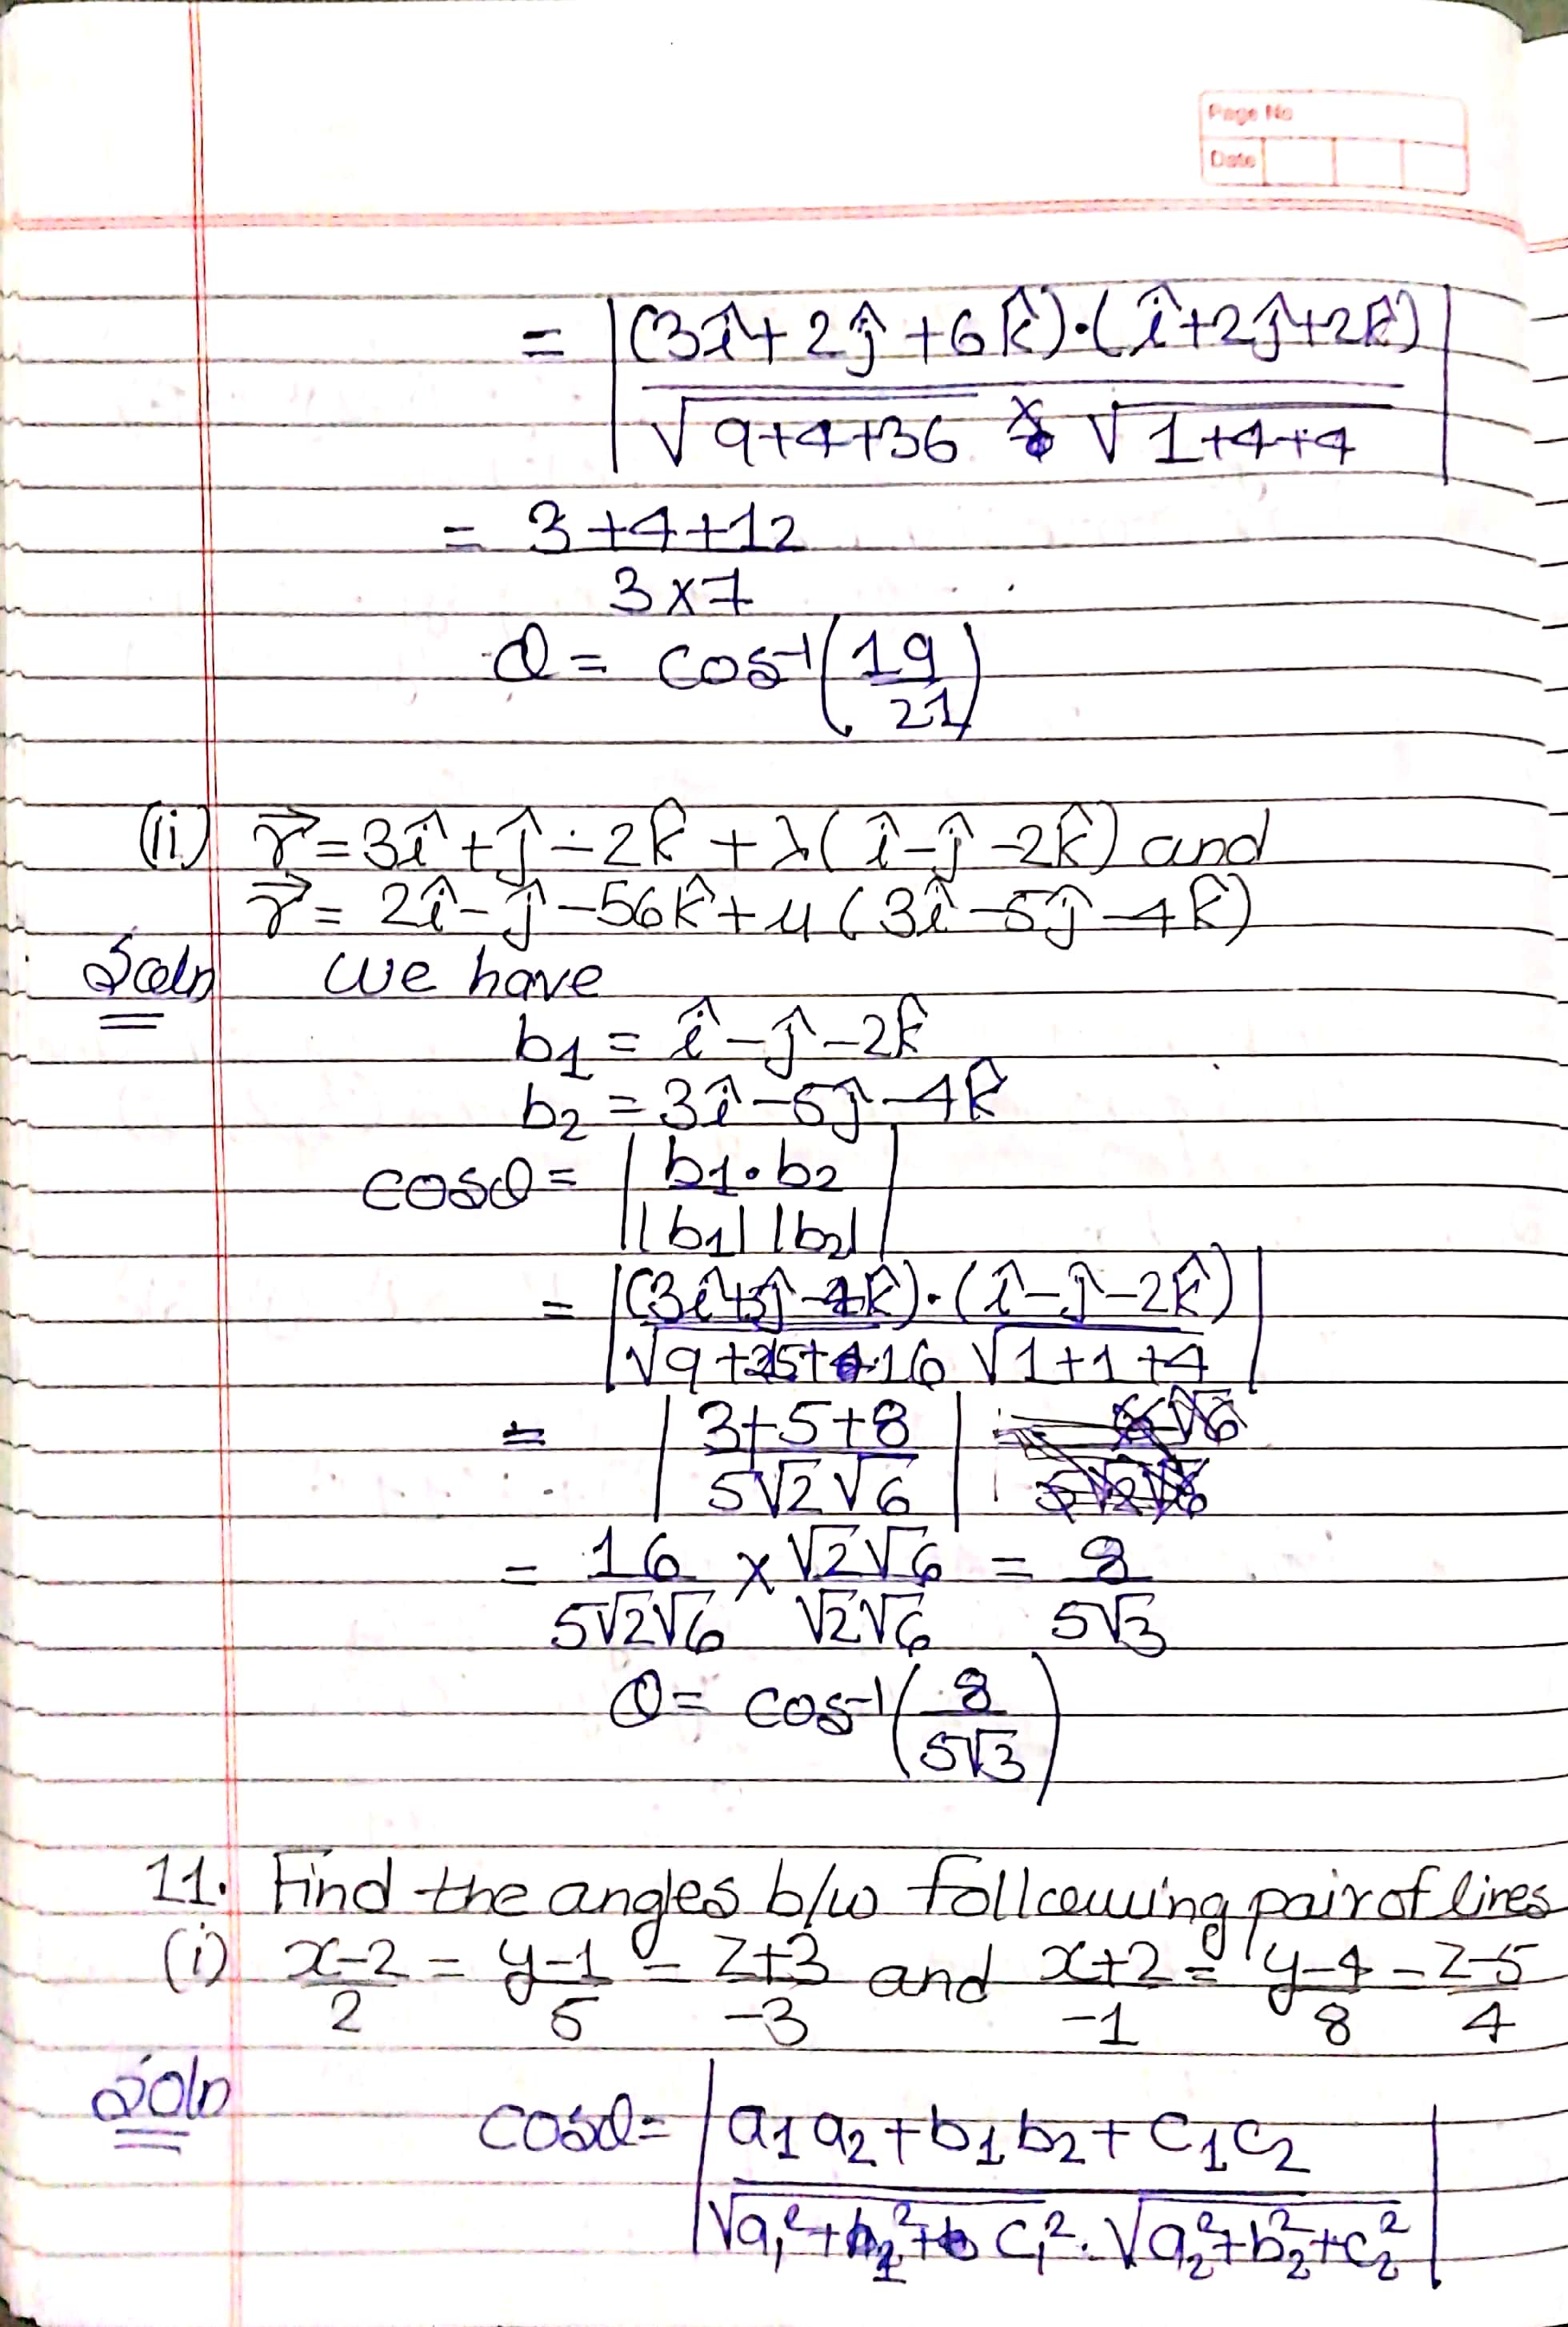 Page No
Date
= |(3î+2ĵ+6k̂)·(î+2ĵ+2k̂)|
√9+4+36 × √1+4+4
= 3+4+12
3×7
θ = cos⁻¹(19/21)
(ii) r⃗ = 3î+ĵ-2k̂+λ(î-ĵ-2k̂) and
r⃗ = 2î-ĵ-56k̂+μ(3î-5ĵ-4k̂)
Soln We have
b1 = î-ĵ-2k̂
b2 = 3î-5ĵ-4k̂
cosθ = |b1·b2|
|b1||b2|
= |(3î+5ĵ-4k̂)·(î-ĵ-2k̂)|
√9+25+16 √1+1+4
= |3+5+8|
5√2√6
= 16/5√2√6 × √2√6/√2√6 = 8/5√3
θ = cos⁻¹(8/5√3)
11. Find the angles b/w following pair of lines
(i) x-2/2 = y-1/5 = z+3/-3 and x+2/-1 = y-4/8 = z-5/4
Soln cosθ = |a1a2+b1b2+c1c2|
√a1²+b1²+c1² · √a2²+b2²+c2²